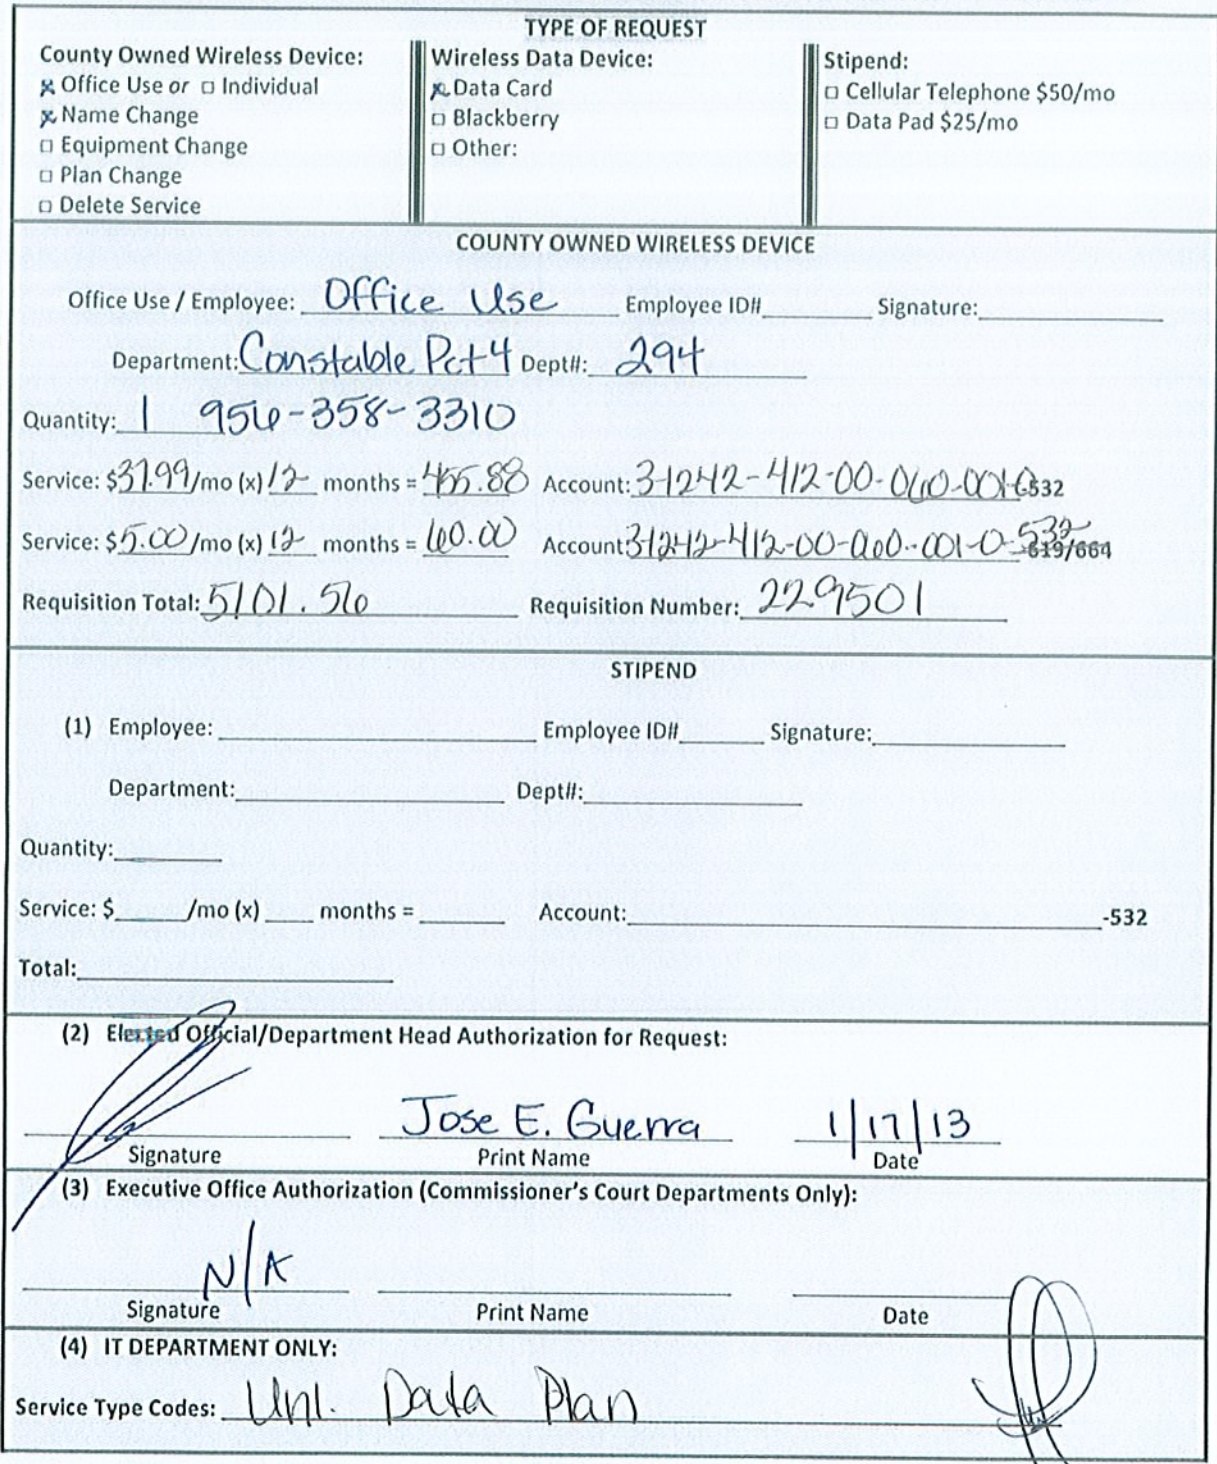 TYPE OF REQUEST
County Owned Wireless Device: Wireless Data Device: Stipend:
Office Use or □ Individual Data Card □ Cellular Telephone $50/mo
Name Change □ Blackberry □ Data Pad $25/mo
□ Equipment Change □ Other:
□ Plan Change
□ Delete Service
COUNTY OWNED WIRELESS DEVICE
Office Use / Employee: Office Use Employee ID# Signature:
Department: Constable Pct 4 Dept#: 294
Quantity: 1 956-358-3310
Service: $37.99/mo (x) 12 months = 455.88 Account: 3-1242-412-00-060-001-0-532
Service: $5.00/mo (x) 12 months = 60.00 Account: 3-1242-412-00-060-001-0-532 619/664
Requisition Total: 5101.56 Requisition Number: 229501
STIPEND
(1) Employee: Employee ID# Signature:
Department: Dept#:
Quantity:
Service: $ /mo (x) months = Account: -532
Total:
(2) Elected Official/Department Head Authorization for Request:
Jose E. Guerra 1/17/13
Signature Print Name Date
(3) Executive Office Authorization (Commissioner's Court Departments Only):
N/A
Signature Print Name Date
(4) IT DEPARTMENT ONLY:
Service Type Codes: Unl. Data Plan